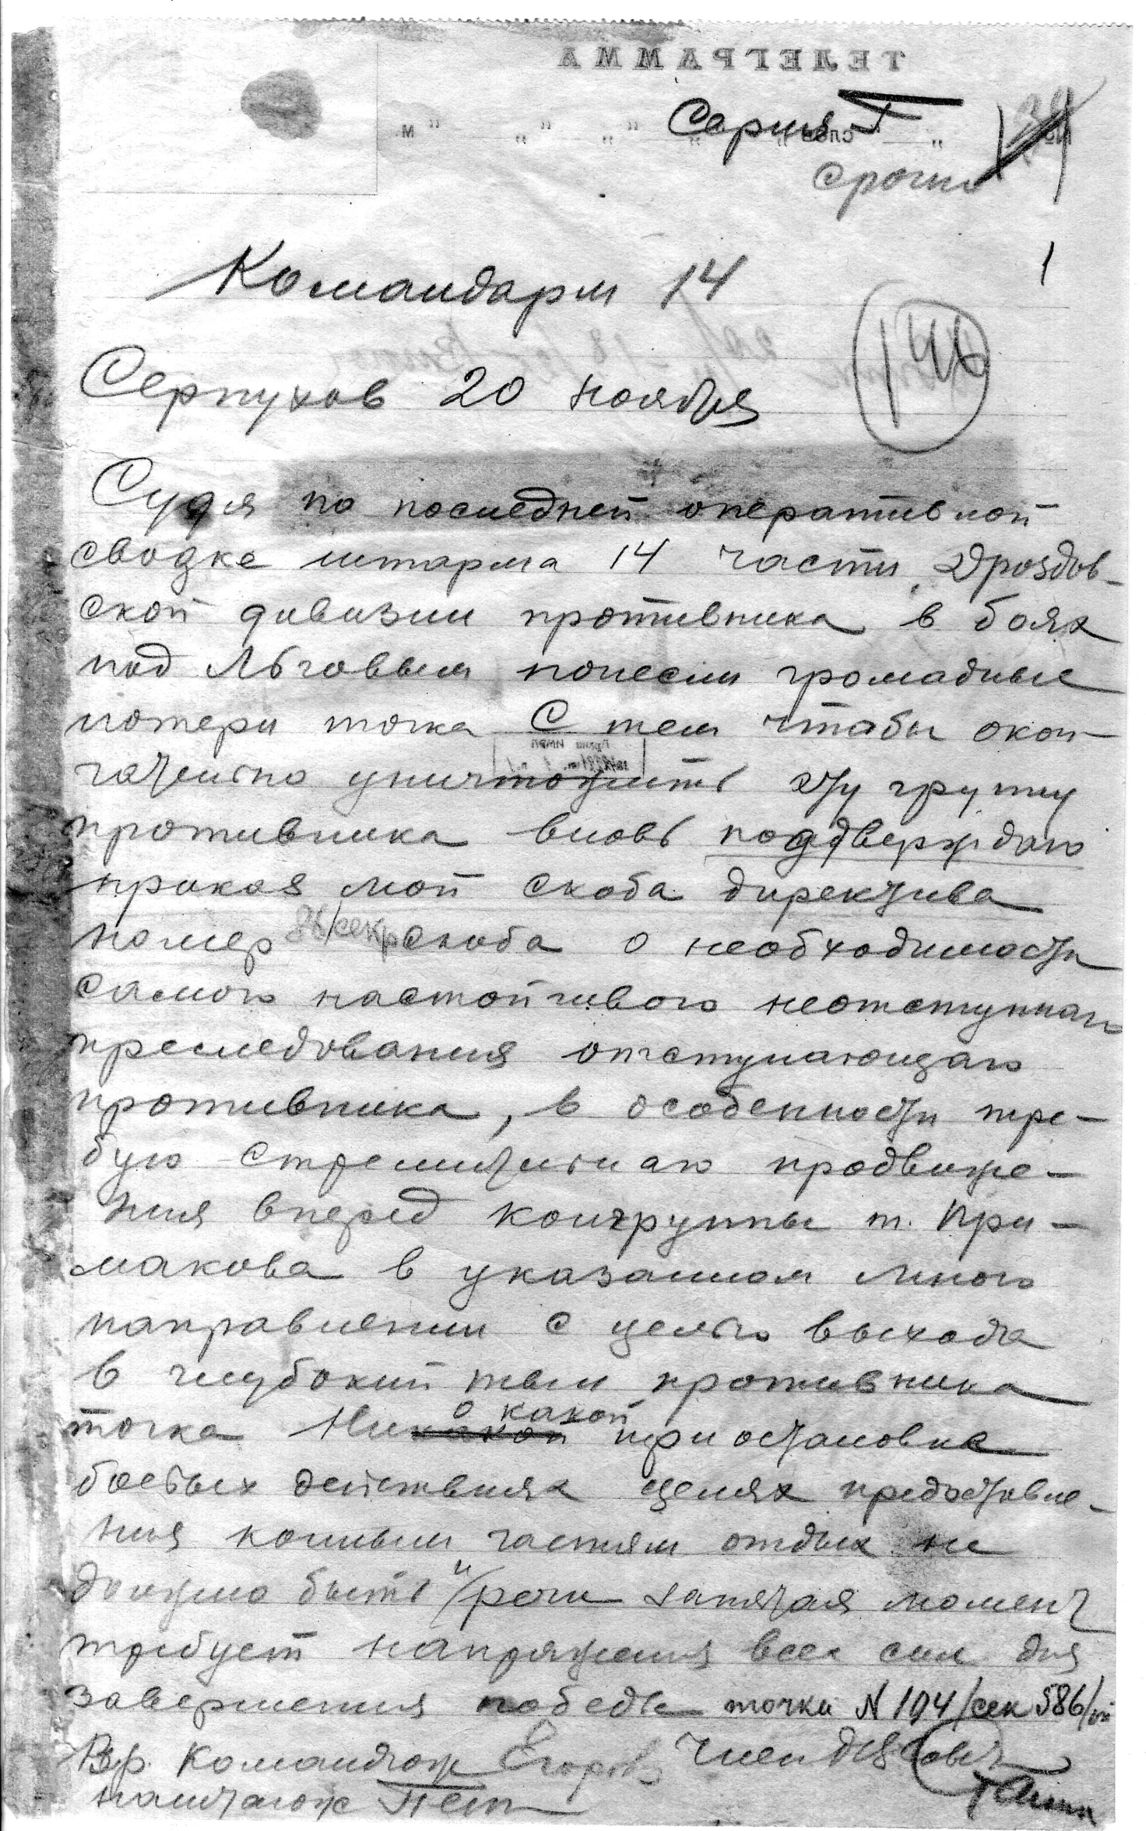 ТЕЛЕГРАММА
Серия Г
срочно
Командарм 14
1
146
Серпухов 20 ноября
Судя по последней оперативной
сводке штарма 14 части Дроздов-
ской дивизии противника в боях
под Льговым понесли громадные
потери точка С тем чтобы окон-
чательно уничтожить эту группу
противника вновь подтверждаю
приказ мой скоба директива
номер 88/секр скоба о необходимости
самого настойчивого неотступнаго
преследования отступающаго
противника, в особенности тре-
бую стремительнаго продвиже-
ния вперед конгруппы т. При-
макова в указанном мною
направлении с целью выхода
в глубокий тыл противника
точка Ни о какой приостановке
боевых действиях целях предоставле-
ния конным частям отдых не
должно быть и/речи запятая момент
требует напряжения всех сил для
завершения победы точка N 194/сек 586/
Вр. Командюж Егоров Член РВС
наштаюж Петин